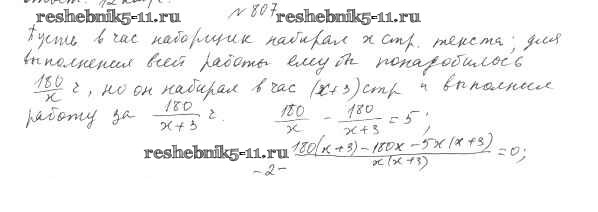 Ответ: 12 стр.
№ 807
reshebnik5-11.ru reshebnik5-11.ru
Пусть в час наборщик набирал x стр. текста; для
выполнения всей работы ему бы понадобилось
180/x ч, но он набирал в час (x+3) стр и выполнил
работу за 180/(x+3) ч. 180/x - 180/(x+3) = 5;
reshebnik5-11.ru (180(x+3) - 180x - 5x(x+3))/(x(x+3)) = 0;
-2-